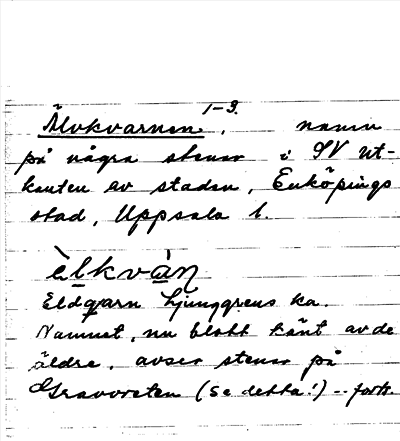 1-3.
Älvkvarnen, namn
på några stenar i SV ut-
kanten av staden, Enköpings
stad, Uppsala l.
èlkvàn
Eldgarn Ljunggrens ka.
Namnet, nu blott känt av de
äldre, avser stenar på
Gravoreten (se detta!) -- forts.